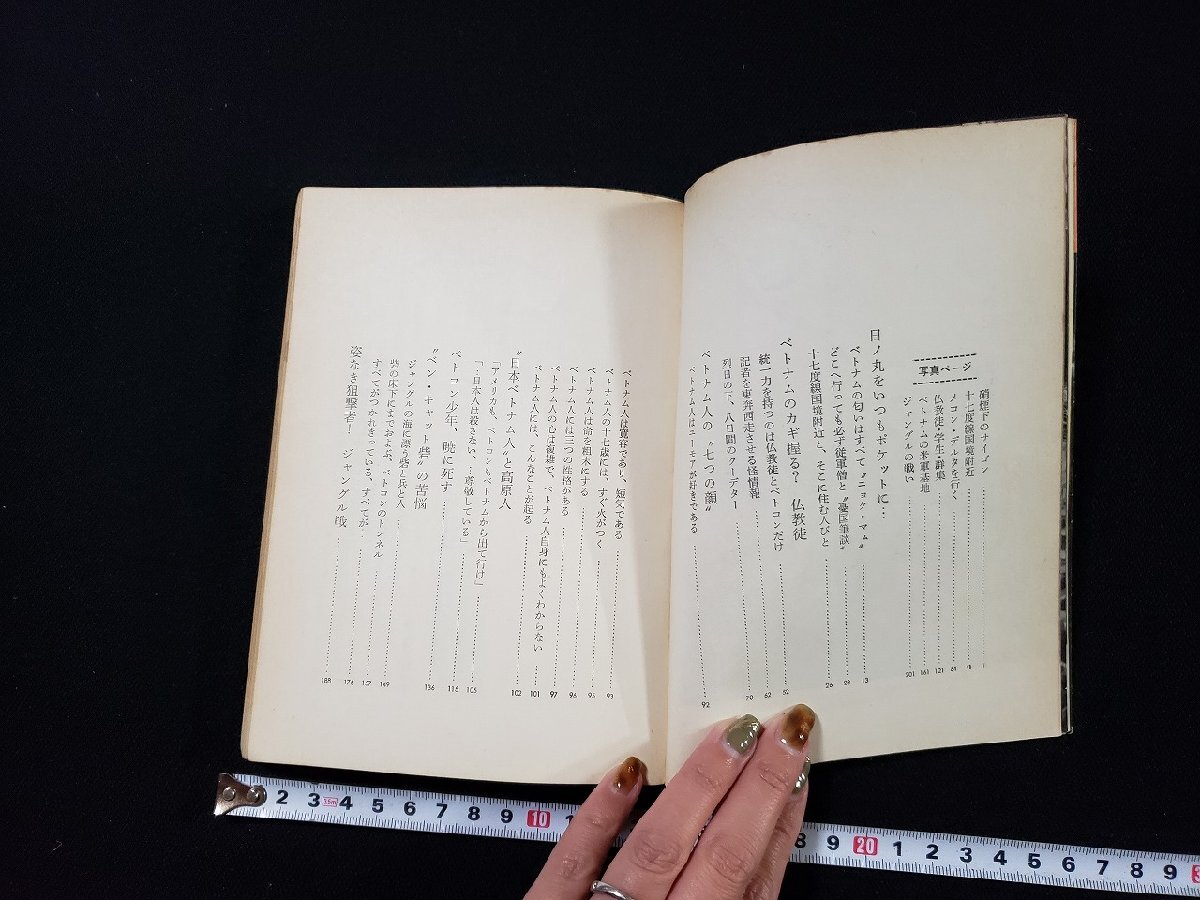 写真ページ
硝煙下のサイゴン
十七度線国境附近
メコン・デルタを行く
仏教徒・学生・群集 121
ベトナムの米軍基地 161
ジャングルの戦い 201
日ノ丸をいつもポケットに… 13
ベトナムの匂いはすべて〝ニョク・マム〟
どこへ行っても必ず従軍僧と〝憂国筆談〟 26
十七度線国境附近と、そこに住む人びと
ベトナムのカギ握る? 仏教徒 52
統一力を持つのは仏教徒とベトコンだけ 62
記者を東奔西走させる怪情報 70
列日の下、八日間のクーデター
ベトナム人の〝七つの顔〟 92
ベトナム人はユーモアが好きである
ベトナム人は寛容であり、短気である 93
ベトナム人の十七歳には、すぐ火がつく 95
ベトナム人は命を粗末にする 96
ベトナム人には三つの性格がある 97
ベトナム人の心は複雑で、ベトナム人自身にもよくわからない
ベトナム人には、こんなことが起る 101
〝日本ベトナム人〟と高原人 102
「アメリカも、ベトコンもベトナムから出て行け」 105
「日本人は殺さない、…尊敬している」
ベトコン少年、暁に死す 115
〝ベン・キャット砦〟の苦悩 136
ジャングルの海に漂う砦と兵と人
砦の床下にまでおよぶ、ベトコンのトンネル 149
すべてがつかれきっている、すべてが
姿なき狙撃者! ジャングル戦 188
2 3 3.5m 4 5 6 7 8 9 10 8 9 20 1 2 3 4 5 6 7 8 9